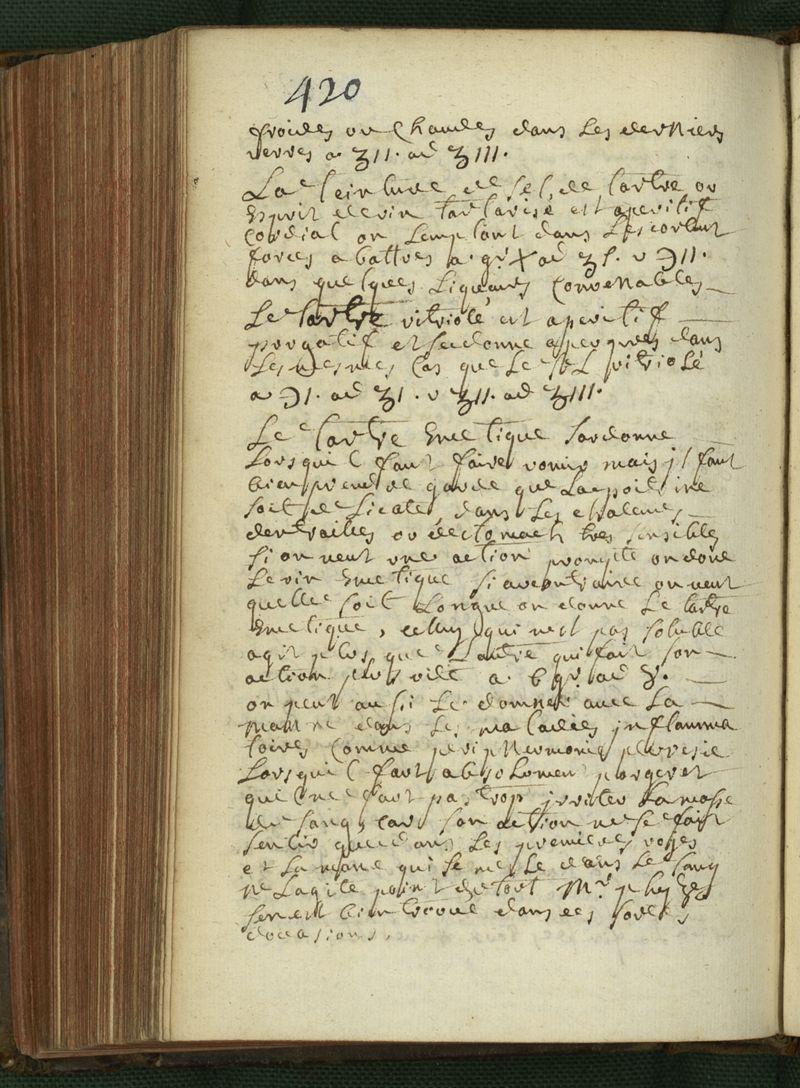 420
froides ou Chaudes dans les derniers
verres a ʒII. ad ʒIII.
La teinture de sel de tartre ou
Esprit de vin tartarisé est aperitif
cordial on lemploit dans les
forces abattües a. gr. X ad ʒſ. v ℈II.
dans quelques liqueurs Convenables
Le tartre vitriolé est aperitif
purgatif et se donne apeupres dans
les mesmes Cas que Le sel vitriolé
a ℈I. ad ʒI. v ʒII. ad ʒIII.
Le tartre Emetique sordonne
Lorsquil faut faire vomir mais jl faut
bien prendre garde que La poitrine
soit delicate, dans les chaleurs
dentrailles ou destomach tres sensibles
si on veut une action prompte on done
Le vin Emetique si au contraire on veut
quelle soit Longue on donne Le tartre
Emetique, celluy qui nest pas soluble
agit plus que Lautre qui fait son
action plus vite a. 6 gr. ad
on peut aussi Le donner avec La
manne dans Les maladies jnflamma
toires Comme peripneumonie pleuresie
Lorsquil faut absolument purger et
quil ne faut pas trop jrriter La masse
du sang, car son action ne se fait
sentir que dans Les premieres voyes
et La mane qui se mesle dans Le sang
ne Lagite point du tout Mr.
sen est bien trouvé dans ces sortes
doccasions.